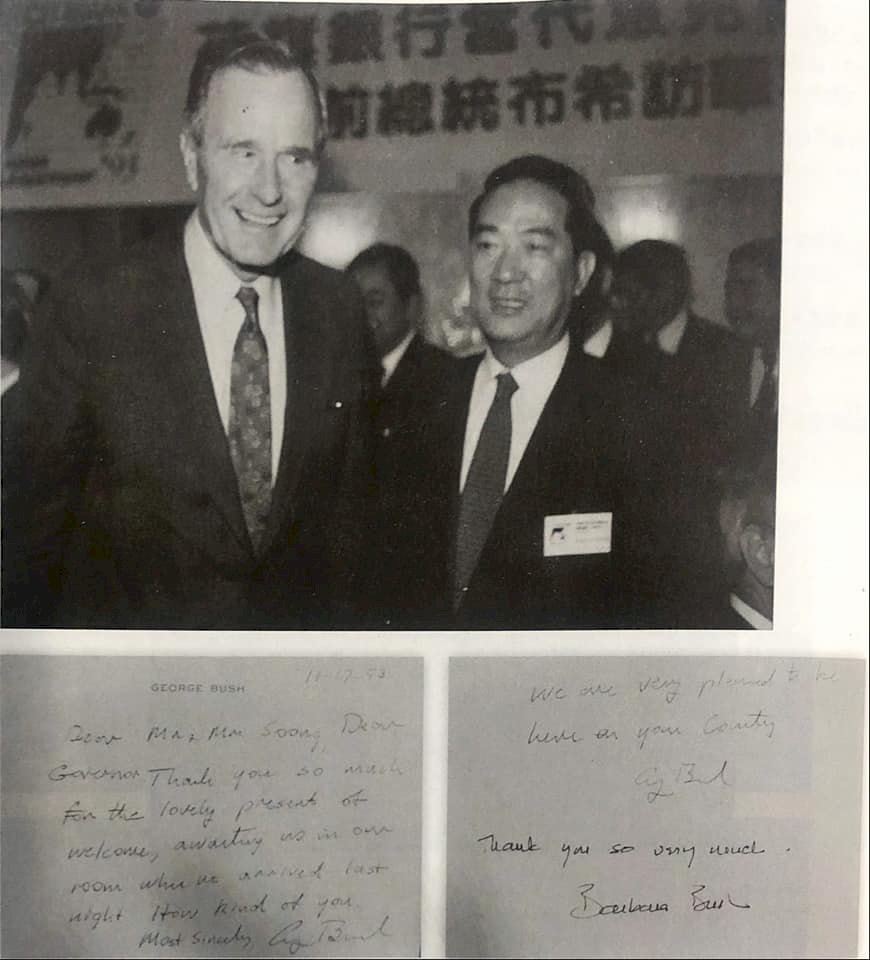 花旗銀行當代意見
前總統布希訪華
'93
GEORGE BUSH
11-17-93
Dear Mr & Mrs Soong, Dear
Governor Thank you so much
for the lovely present of
welcome, awaiting us in our
room when we arrived last
night How kind of you.
Most Sincerely, G Bush
We are very pleased to be
here in your Country
G Bush
Thank you so very much.
Barbara Bush